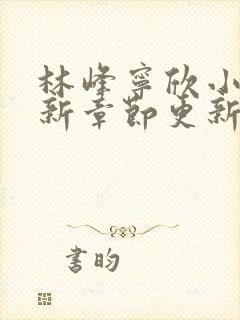 林峰寧欣小
新章節更新
書昀